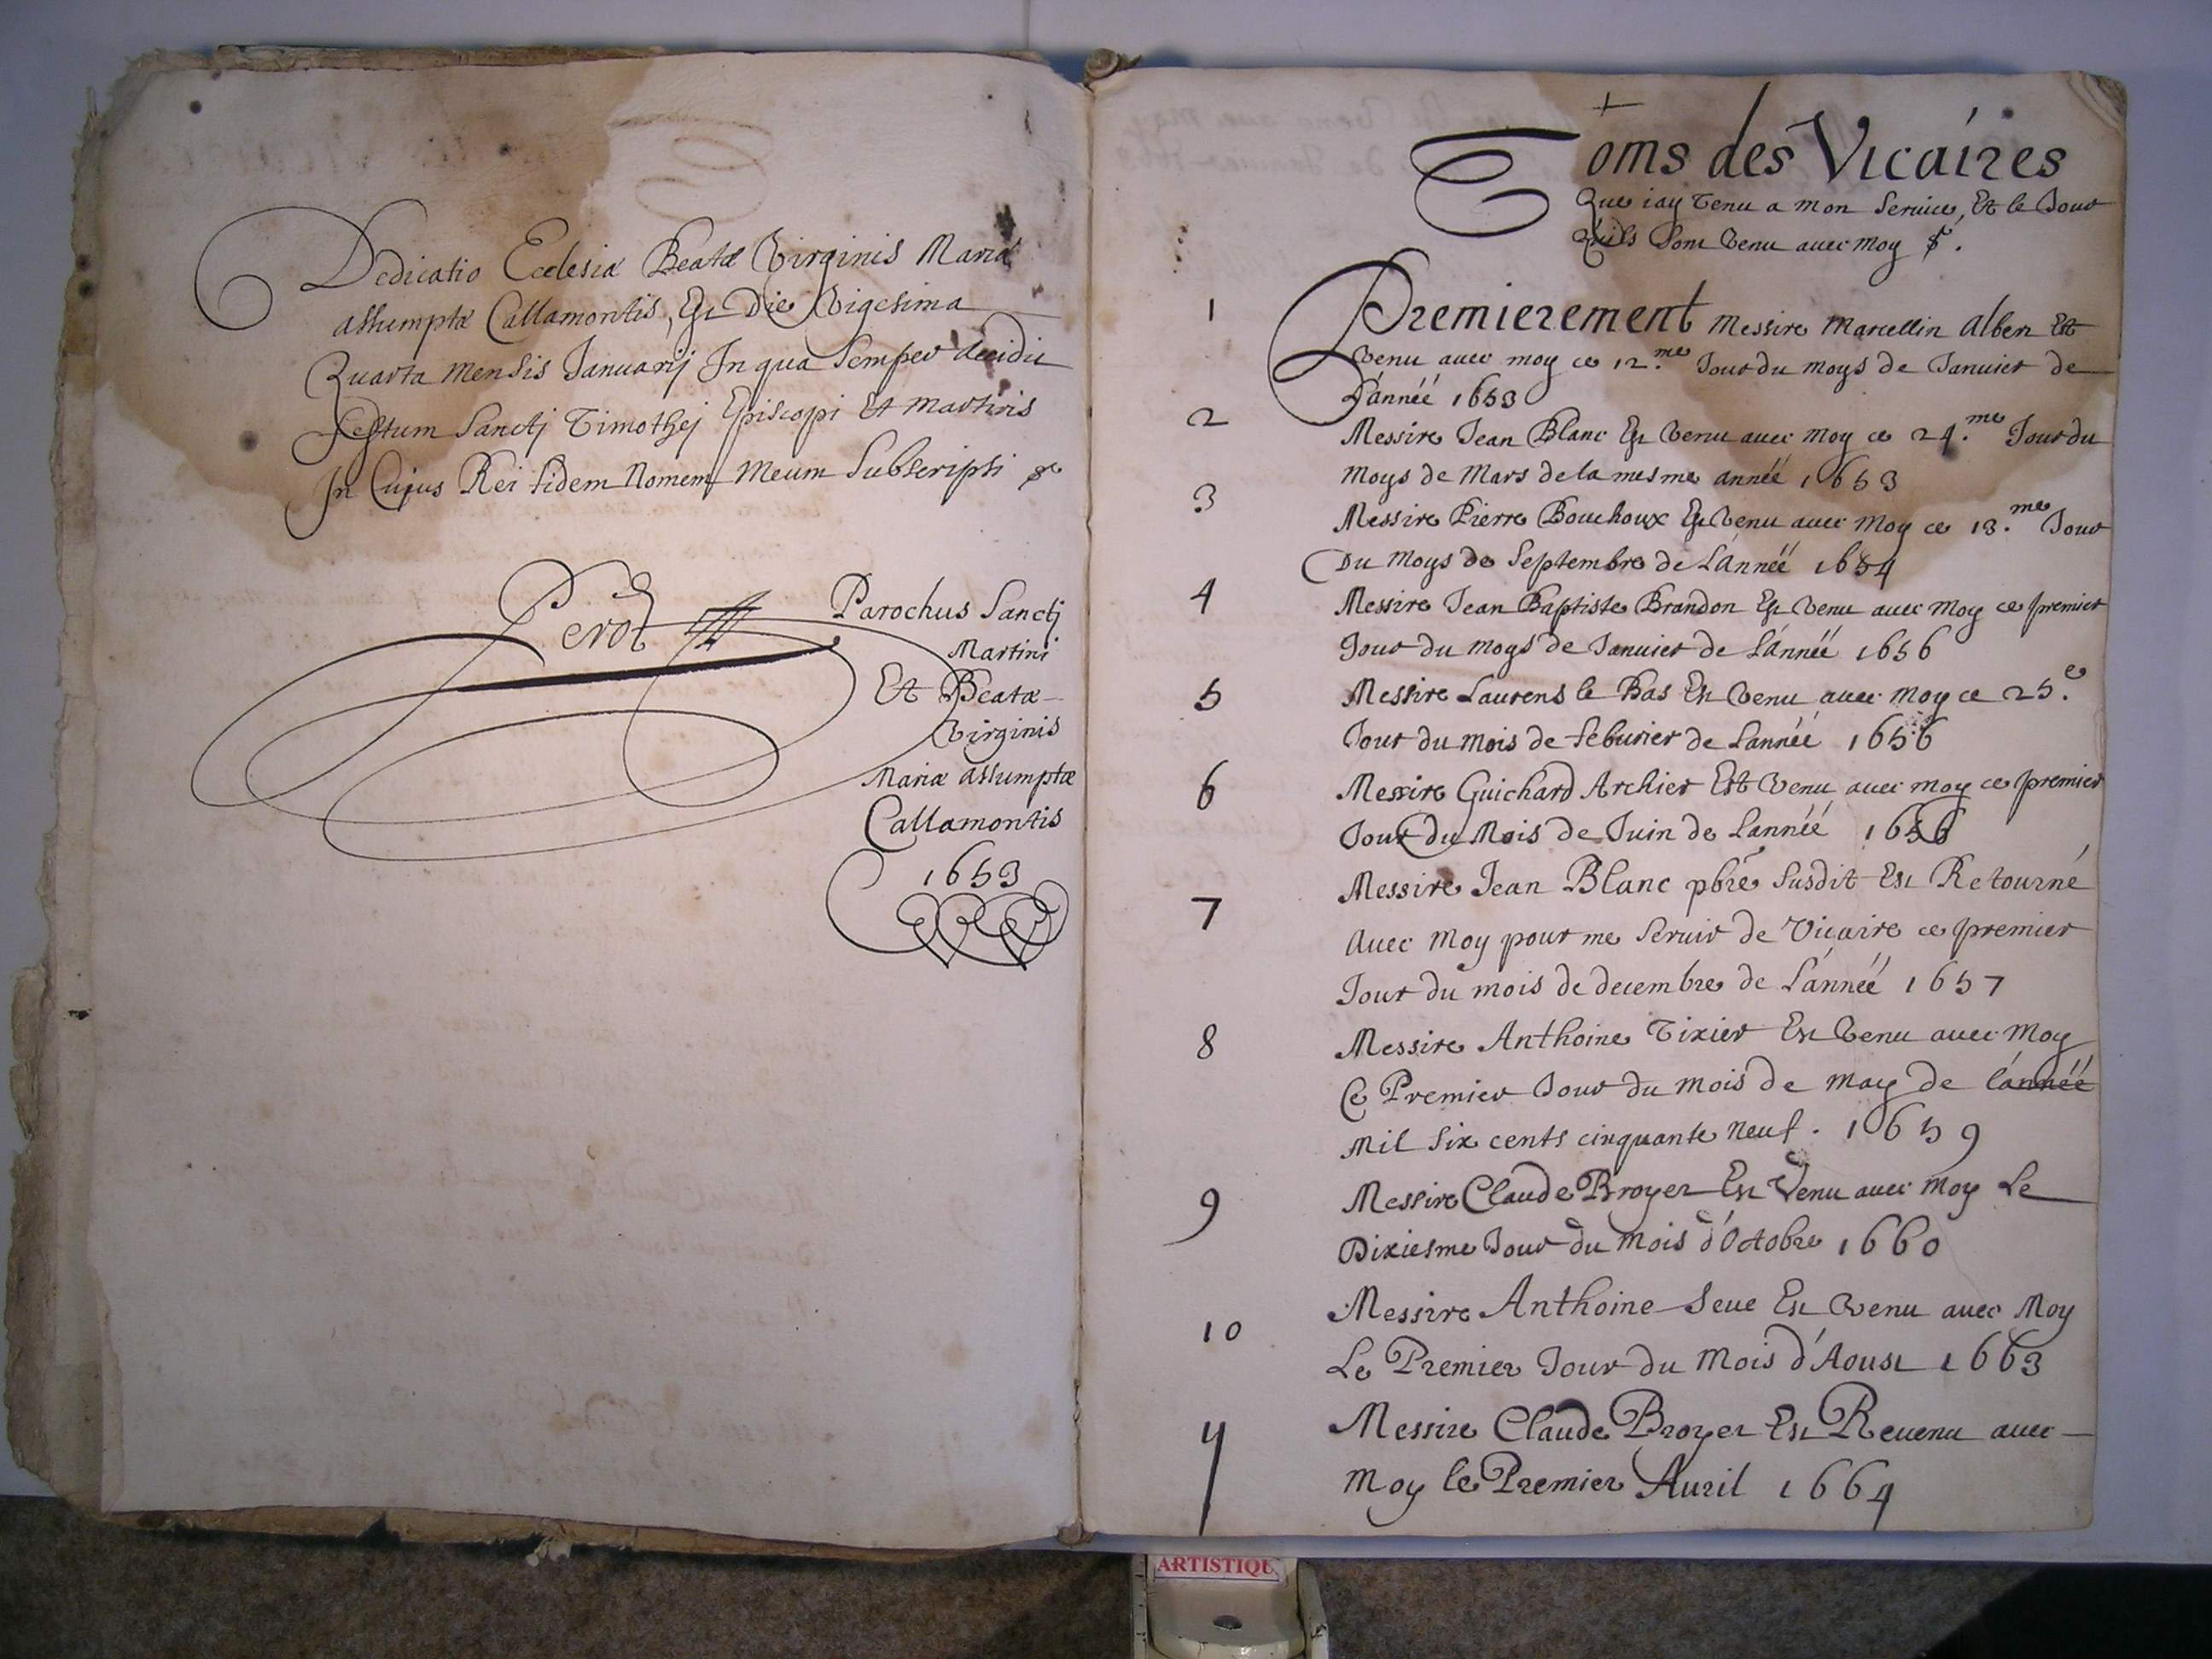 Dedicatio Ecclesiæ Beatæ Virginis Mariæ
assumptæ Callamontis, Est Die Vigesima
Quarta mensis Januarij In qua semper decidit
Festum Sanctj Timothej Episcopi Et martiris
In Cujus Rei fidem Nomem Meum Subscripsi &c
Perot
Parochus Sanctj
Martini
Et Beatæ
Virginis
Mariæ assumptæ
Callamontis
1653
Noms des Vicaires
Que iay Tenu a mon Seruice, Et le Jour
Quils Sont Venu auec moy &c.
1 Premierement Messire Marcellin Alben Est
Venu auec moy ce 12.me Jour du moys de Januier de
L'annéé 1653
2 Messire Jean Blanc Est Venu auec moy ce 24.me Jour du
Moys de Mars de la mesme annéé 1653
3 Messire Pierre Bouchoux Est Venu auec Moy ce 13.me Jour
Du Moys de Septembre de L'annéé 1654
4 Messire Jean Baptiste Brandon Est Venu auec moy ce premier
Jour du moys de Januier de L'annéé 1656
5 Messire Laurens le Bas Est Venu auec moy ce 25.e
Jour du mois de feburier de Lannéé 1656
6 Messire Guichard Archier Est Venu auec moy ce premier
Jour du Mois de Juin de Lannéé 1656
7 Messire Jean Blanc pbre Susdit Est Retourné
Auec Moy pour me Seruir de Vicaire ce premier
Jour du mois de decembre de L'annéé 1657
8 Messire Anthoine Tixier Est Venu auec Moy
Ce Premier Jour du mois de may de l'annéé
Mil Six cents cinquante neuf. 1659
9 Messire Claude Broyer Est Venu auec moy Le
Dixiesme Jour du mois d'Octobre 1660
10 Messire Anthoine Seue Est Venu auec Moy
Le Premier Jour du Mois d'Aoust 1663
11 Messire Claude Broyer Est Reuenu auec
Moy le Premier Auril 1664
ARTISTIQU